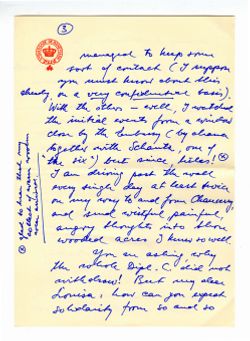 ③
managed to keep some
sort of contact (I suppose
you must know about this
already, on a very confidential basis).
With the others – well, I watched
the initial events from a window
close by the Embassy (by chance
together with , one of
the six) but since,
I am driving past the wall
every single day at least twice
on my way to and from Chancery,
and send wistful, painful,
angry thoughts into those
wooded acres I knew so well.
You are asking why
the whole Dipl. C. did not
withdraw! But my dear
Louisa, how can you expect
solidarity from so and so
glad to hear that my